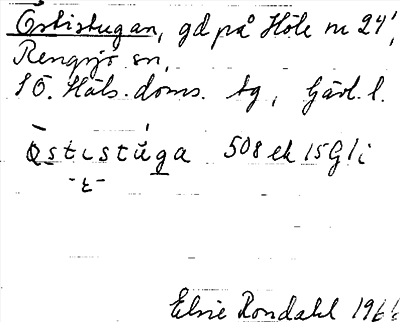 Östistugan, gd på Höle nr 24¹,
Rengsjö sn,
SÖ. Häls. doms. tg, Gävl. l.
Östistúga 508 ek 15 G 1 i
-ɛ-
Elsie Rondahl 1966